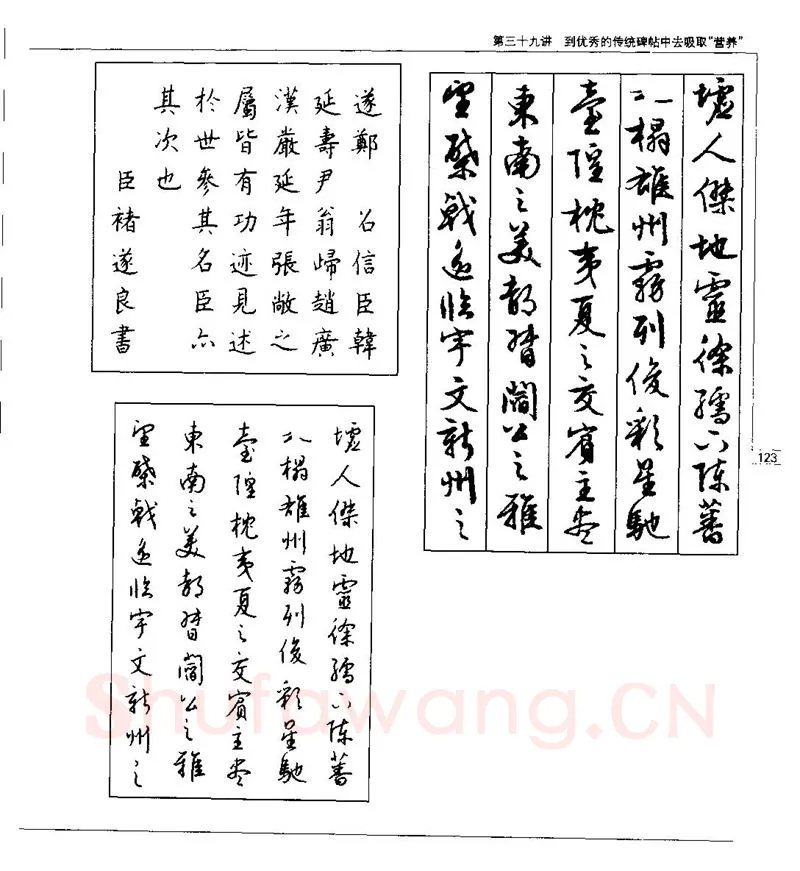 第三十九讲 到优秀的传统碑帖中去吸取“营养”
墟人傑地靈徐孺下陳蕃
之榻雄州霧列俊彩星馳
臺隍枕夷夏之交賓主盡
東南之美都督閻公之雅
望棨戟遙臨宇文新州之
遂鄭 召信臣韓
延壽尹翁歸趙廣
漢嚴延年張敞之
屬皆有功迹見述
於世參其名臣亦
其次也
臣褚遂良書
墟人傑地靈徐孺下陳蕃
之榻雄州霧列俊彩星馳
臺隍枕夷夏之交賓主盡
東南之美都督閻公之雅
望棨戟遙臨宇文新州之
123
Shufawang.CN